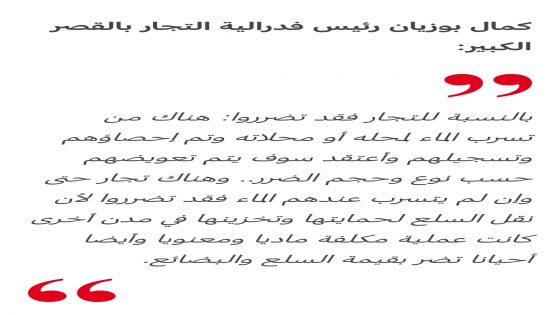 كمال بوزيان رئيس فدرالية التجار بالقصر
الكبير:
بالنسبة للتجار فقد تضرروا: هناك من
تسرب الماء لمحله أو محلاته وتم إحصاؤهم
وتسجيلهم وأعتقد سوف يتم تعويضهم
حسب نوع وحجم الضرر.. وهناك تجار حتى
وإن لم يتسرب عندهم الماء فقد تضرروا لأن
نقل السلع لحمايتها وتخزينها في مدن أخرى
كانت عملية مكلفة ماديا ومعنويا وأيضا
أحيانا تضر بقيمة السلع والبضائع.